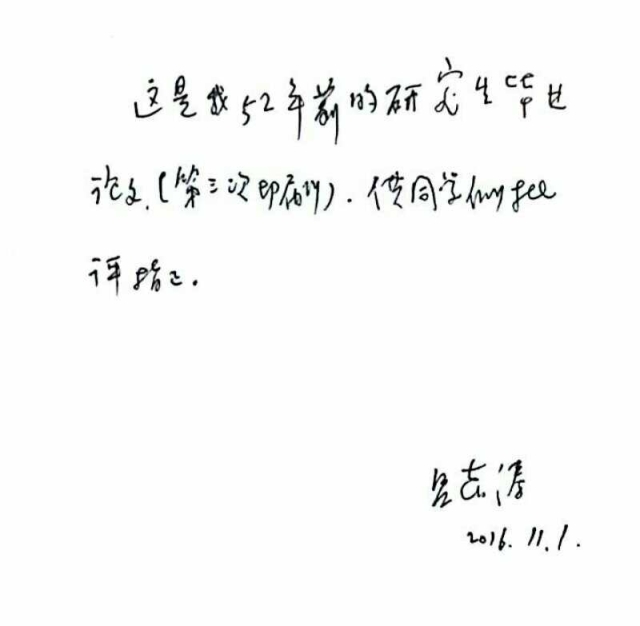 这是我52年前的研究生毕业
论文(第三次印刷).供同学们批
评指正.
吕志涛
2016.11.1.